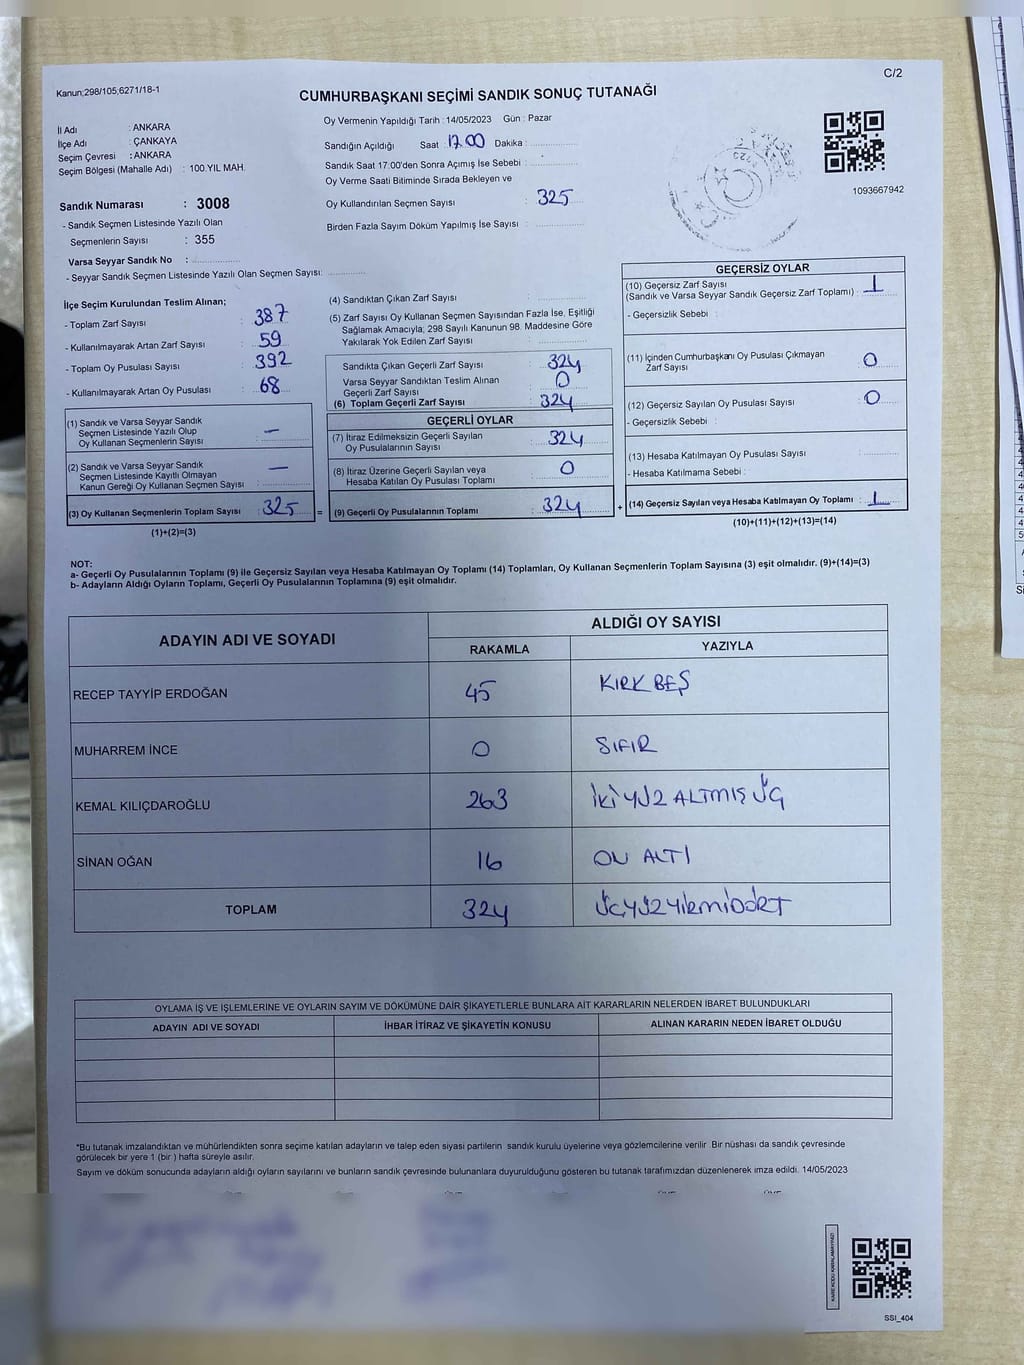 C/2
Kanun;298/105,6271/18-1
CUMHURBAŞKANI SEÇİMİ SANDIK SONUÇ TUTANAĞI
İl Adı : ANKARA
İlçe Adı : ÇANKAYA
Seçim Çevresi : ANKARA
Seçim Bölgesi (Mahalle Adı) : 100.YIL MAH.
Sandık Numarası : 3008
- Sandık Seçmen Listesinde Yazılı Olan
Seçmenlerin Sayısı : 355
Varsa Seyyar Sandık No :
- Seyyar Sandık Seçmen Listesinde Yazılı Olan Seçmen Sayısı:
Oy Vermenin Yapıldığı Tarih : 14/05/2023 Gün : Pazar
Sandığın Açıldığı Saat : 17.00 Dakika :
Sandık Saat 17:00'den Sonra Açımış İse Sebebi :
Oy Verme Saati Bitiminde Sırada Bekleyen ve
Oy Kullandırılan Seçmen Sayısı : 325
Birden Fazla Sayım Döküm Yapılmış İse Sayısı :
1093667942
İlçe Seçim Kurulundan Teslim Alınan;
- Toplam Zarf Sayısı : 387
- Kullanılmayarak Artan Zarf Sayısı : 59
- Toplam Oy Pusulası Sayısı : 392
- Kullanılmayarak Artan Oy Pusulası : 68
(1) Sandık ve Varsa Seyyar Sandık
Seçmen Listesinde Yazılı Olup
Oy Kullanan Seçmenlerin Sayısı : —
(2) Sandık ve Varsa Seyyar Sandık
Seçmen Listesinde Kayıtlı Olmayan
Kanun Gereği Oy Kullanan Seçmen Sayısı : —
(3) Oy Kullanan Seçmenlerin Toplam Sayısı : 325 =
(1)+(2)=(3)
(4) Sandıktan Çıkan Zarf Sayısı :
(5) Zarf Sayısı Oy Kullanan Seçmen Sayısından Fazla İse, Eşitliği
Sağlamak Amacıyla; 298 Sayılı Kanunun 98. Maddesine Göre
Yakılarak Yok Edilen Zarf Sayısı :
Sandıkta Çıkan Geçerli Zarf Sayısı : 324
Varsa Seyyar Sandıktan Teslim Alınan
Geçerli Zarf Sayısı : 0
(6) Toplam Geçerli Zarf Sayısı : 324
GEÇERLİ OYLAR
(7) İtiraz Edilmeksizin Geçerli Sayılan
Oy Pusulalarının Sayısı : 324
(8) İtiraz Üzerine Geçerli Sayılan veya
Hesaba Katılan Oy Pusulası Toplamı : 0
(9) Geçerli Oy Pusulalarının Toplamı : 324 +
GEÇERSİZ OYLAR
(10) Geçersiz Zarf Sayısı
(Sandık ve Varsa Seyyar Sandık Geçersiz Zarf Toplamı) : 1
- Geçersizlik Sebebi :
(11) İçinden Cumhurbaşkanı Oy Pusulası Çıkmayan
Zarf Sayısı : 0
(12) Geçersiz Sayılan Oy Pusulası Sayısı : 0
- Geçersizlik Sebebi :
(13) Hesaba Katılmayan Oy Pusulası Sayısı :
- Hesaba Katılmama Sebebi :
(14) Geçersiz Sayılan veya Hesaba Katılmayan Oy Toplamı : 1
(10)+(11)+(12)+(13)=(14)
NOT:
a- Geçerli Oy Pusulalarının Toplamı (9) ile Geçersiz Sayılan veya Hesaba Katılmayan Oy Toplamı (14) Toplamları, Oy Kullanan Seçmenlerin Toplam Sayısına (3) eşit olmalıdır. (9)+(14)=(3)
b- Adayların Aldığı Oyların Toplamı, Geçerli Oy Pusulalarının Toplamına (9) eşit olmalıdır.
ADAYIN ADI VE SOYADI
ALDIĞI OY SAYISI
RAKAMLA YAZIYLA
RECEP TAYYİP ERDOĞAN 45 KIRK BEŞ
MUHARREM İNCE 0 SIFIR
KEMAL KILIÇDAROĞLU 263 İKİ YÜZ ALTMIŞ ÜÇ
SİNAN OĞAN 16 ON ALTI
TOPLAM 324 ÜÇYÜZYİRMİDÖRT
OYLAMA İŞ VE İŞLEMLERİNE VE OYLARIN SAYIM VE DÖKÜMÜNE DAİR ŞİKAYETLERLE BUNLARA AİT KARARLARIN NELERDEN İBARET BULUNDUKLARI
ADAYIN ADI VE SOYADI İHBAR İTİRAZ VE ŞİKAYETİN KONUSU ALINAN KARARIN NEDEN İBARET OLDUĞU
*Bu tutanak imzalandıktan ve mühürlendikten sonra seçime katılan adayların ve talep eden siyasi partilerin sandık kurulu üyelerine veya gözlemcilerine verilir. Bir nüshası da sandık çevresinde
görülecek bir yere 1 (bir ) hafta süreyle asılır.
Sayım ve döküm sonucunda adayların aldığı oyların sayılarını ve bunların sandık çevresinde bulunanlara duyurulduğunu gösteren bu tutanak tarafımızdan düzenlenerek imza edildi. 14/05/2023
KAREKODU KARALAMAYINIZ!
SSI_404